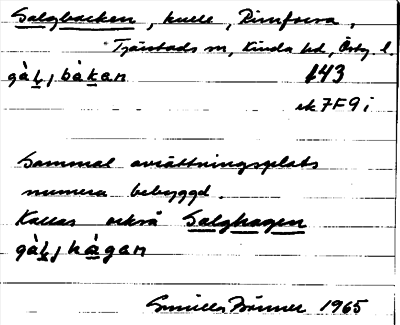 Galgbacken, kulle, Rimforsa,
Tjärstads sn, Kinda hd, Östg. l.
gàl̠j bàkan 143
ek 7F9i
Gammal avrättningsplats
numera bebyggd.
Kallas också Galghagen
gàl̠j hàgan
Gunilla Brönner 1965